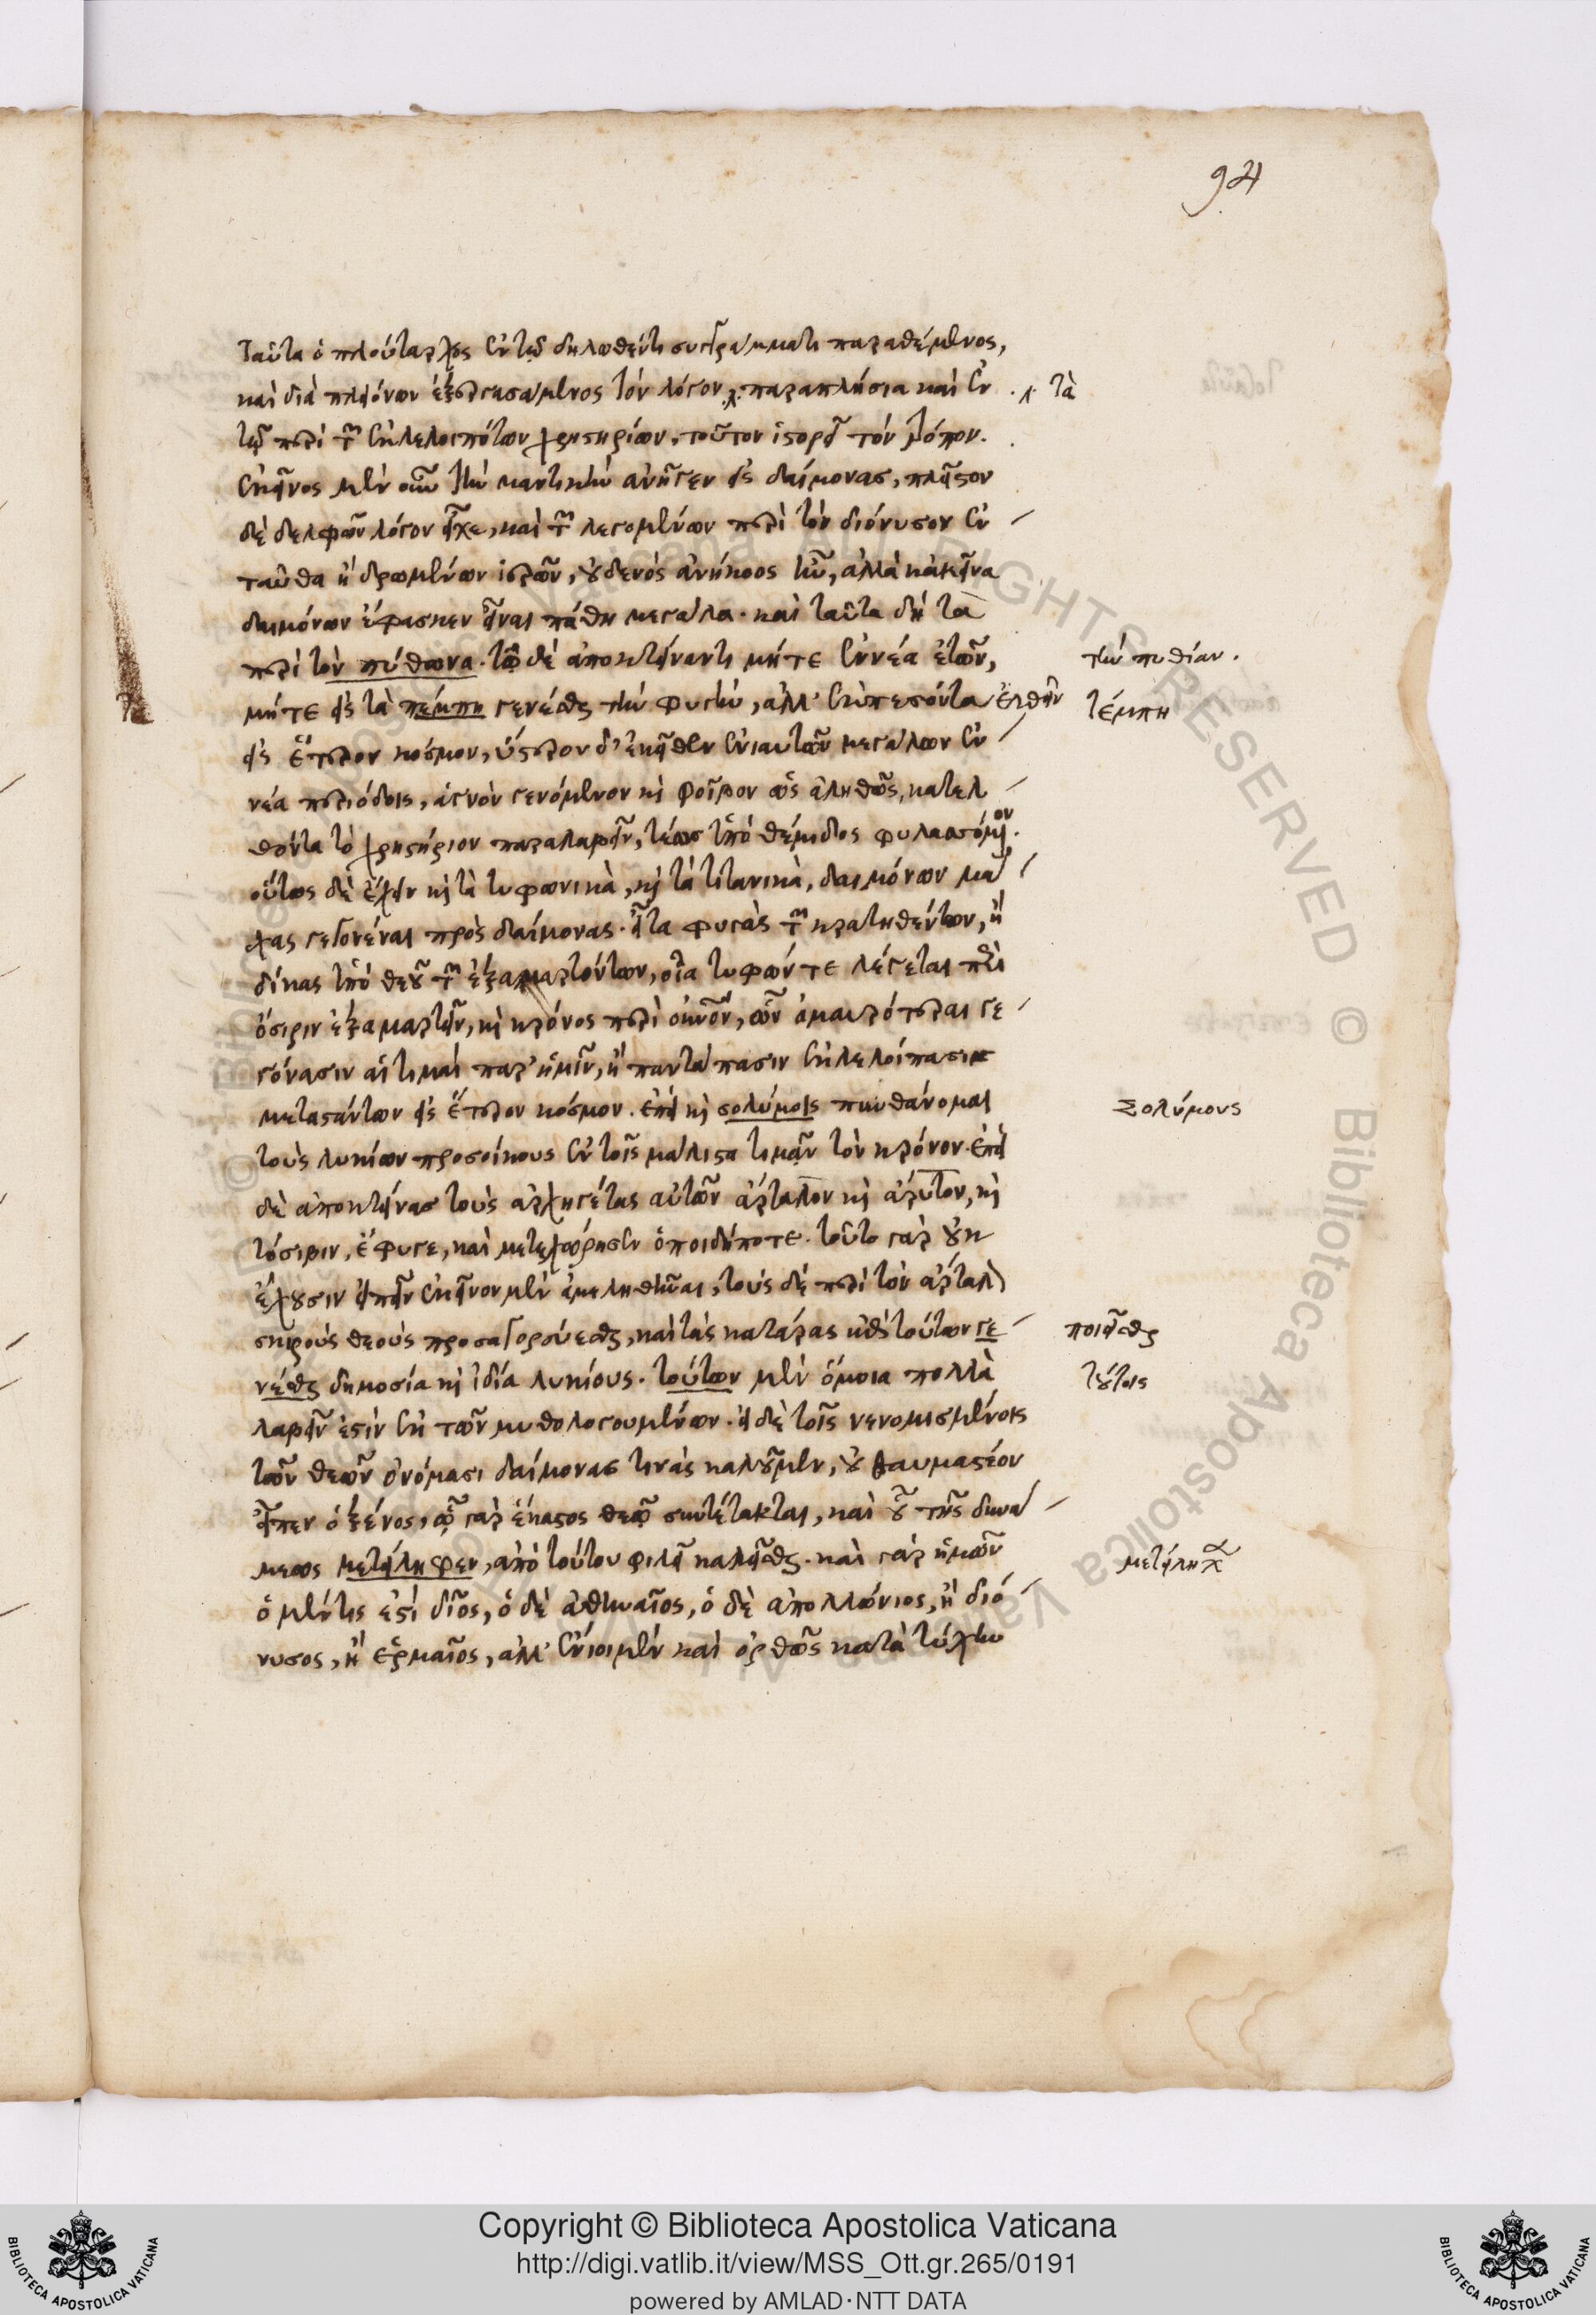 94
Ταῦτα ὁ πλούταρχος ἐν τῷ δηλωθέντι συγγράμματι παραθέμενος,
καὶ διὰ πλειόνων ἐξεργασάμενος τὸν λόγον, παραπλήσια καὶ ἐν
τὰ
τῷ περὶ τῶν ἐκλελοιπότων χρηστηρίων, τοῦτον ἱστορεῖ τὸν τρόπον.
ἐκεῖνος μὲν οὖν τὴν μαντικὴν ἀνῆγεν εἰς δαίμονας, πλεῖστον
δὲ δελφῶν λόγον εἶχε, καὶ τῶν λεγομένων περὶ τὸν διόνυσον ἐν
ταῦθα ἢ δρωμένων ἱερῶν, οὐδενὸς ἀνήκοος ἦν, ἀλλὰ κἀκεῖνα
δαιμόνων ἔφασκεν εἶναι πάθη μεγάλα. καὶ ταῦτα δὴ τὰ
περὶ τὸν πύθωνα. τῷ δὲ ἀποκτείναντι μήτε ἐννέα ἐτῶν,
τὴν πυθίαν.
μήτε εἰς τὰ πέμπη γενέσθαι τὴν φυγὴν, ἀλλ' ἐκπεσόντα ἐλθεῖν
τέμπη
εἰς ἕτερον κόσμον, ὕστερον δ' ἐκεῖθεν ἐνιαυτῶν μεγάλων ἐν
νέα περιόδοις, ἁγνὸν γενόμενον καὶ φοῖβον ὡς ἀληθῶς, κατελ
θόντα τὸ χρηστήριον παραλαβεῖν, τέως ὑπὸ θέμιδος φυλασσόμενον.
οὕτως δὲ ἔχειν καὶ τὰ τυφωνικὰ, καὶ τὰ τιτανικὰ, δαιμόνων μά
χας γεγονέναι πρὸς δαίμονας. εἶτα φυγὰς τῶν κρατηθέντων, ἢ
δίκας ὑπὸ θεοῦ τῶν ἐξαμαρτόντων, οἷα τυφών τε λέγεται περὶ
ὄσιριν ἐξαμαρτεῖν, καὶ κρόνος περὶ οὐρανόν, ὧν ἀμαυρότεραι γε
γόνασιν αἱ τιμαὶ παρ' ἡμῖν, ἢ παντάπασιν ἐκλελοίπασι
μεταστάντων εἰς ἕτερον κόσμον. ἐπεὶ καὶ σολύμοις πυνθάνομαι
Σολύμους
τοὺς λυκίων προσοίκους ἐν τοῖς μάλιστα τιμᾷν τὸν κρόνον. ἐπεὶ
δὲ ἀποκτείνας τοὺς ἀρχηγέτας αὐτῶν ἄρταλον καὶ ἄρυτον, καὶ
τόσιβιν, ἔφυγε, καὶ μετεχώρησεν ὁποιδήποτε. τοῦτο γὰρ οὐκ
ἔχουσιν εἰπεῖν ἐκεῖνον μὲν ἀμεληθῆναι, τοὺς δὲ περὶ τὸν ἄρταλον
σκιροὺς θεοὺς προσαγορεύεσθαι, καὶ τὰς κατάρας ἐπὶ τούτων γε
ποιεῖσθαι
νέσθαι δημοσίᾳ καὶ ἰδίᾳ λυκίους. τούτων μὲν ὅμοια πολλὰ
τούτοις
λαβεῖν ἐστὶν ἐκ τῶν μυθολογουμένων. εἰ δὲ τοῖς νενομισμένοις
τῶν θεῶν ὀνόμασι δαίμονας τινὰς καλοῦμεν, οὐ θαυμαστέον
εἶπεν ὁ ξένος, ᾧ γὰρ ἕκαστος θεῷ συντέτακται, καὶ οὗ τῆς δυνά
μεως μετείληφεν, ἀπὸ τούτου φιλεῖ καλεῖσθαι. καὶ γὰρ ἡμῶν
μετείληχε
ὁ μέν τις ἐστὶ δῖος, ὁ δὲ ἀθηναῖος, ὁ δὲ ἀπολλώνιος, ἢ διό
νυσος, ἢ ἑρμαῖος, ἀλλ' ἔνιοι μὲν καὶ ὀρθῶς κατὰ τύχην
Copyright © Biblioteca Apostolica Vaticana
http://digi.vatlib.it/view/MSS_Ott.gr.265/0191
powered by AMLAD·NTT DATA